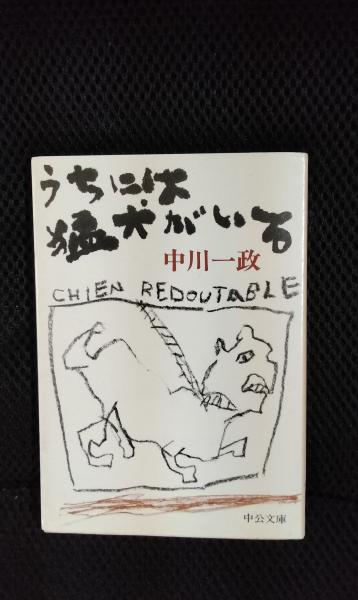 うちには
猛犬がいる
中川一政
CHIEN REDOUTABLE
中公文庫